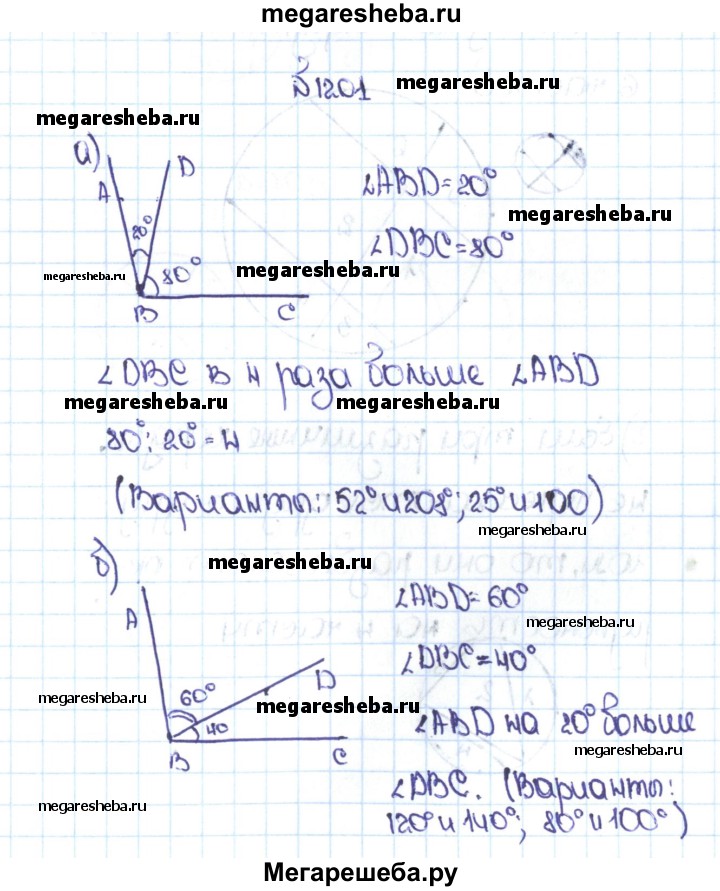 megaresheba.ru
№1201
megaresheba.ru
megaresheba.ru
а)
A
D
20°
80°
B
C
∠ABD=20°
megaresheba.ru
∠DBC=80°
megaresheba.ru
megaresheba.ru
∠DBC в 4 раза больше ∠ABD
megaresheba.ru
megaresheba.ru
80°:20°=4
(Варианты: 52° и 208°; 25° и 100)
megaresheba.ru
megaresheba.ru
б)
A
D
60°
40
B
C
∠ABD=60°
megaresheba.ru
∠DBC=40°
megaresheba.ru
megaresheba.ru
∠ABD на 20° больше
megaresheba.ru
∠DBC. (Варианты:
120° и 140°; 80° и 100°)
megaresheba.ru
Мегарешеба.ру